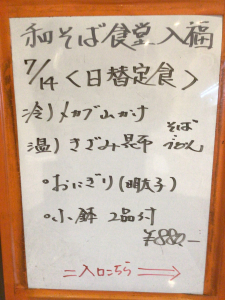 和そば食堂 入福
7/14 <日替定食>
冷) メカブ山かけ
温) きざみ昆布
そば
うどん
・おにぎり(明太子)
・小鉢 2品付
¥880-
=入口こちら⇒